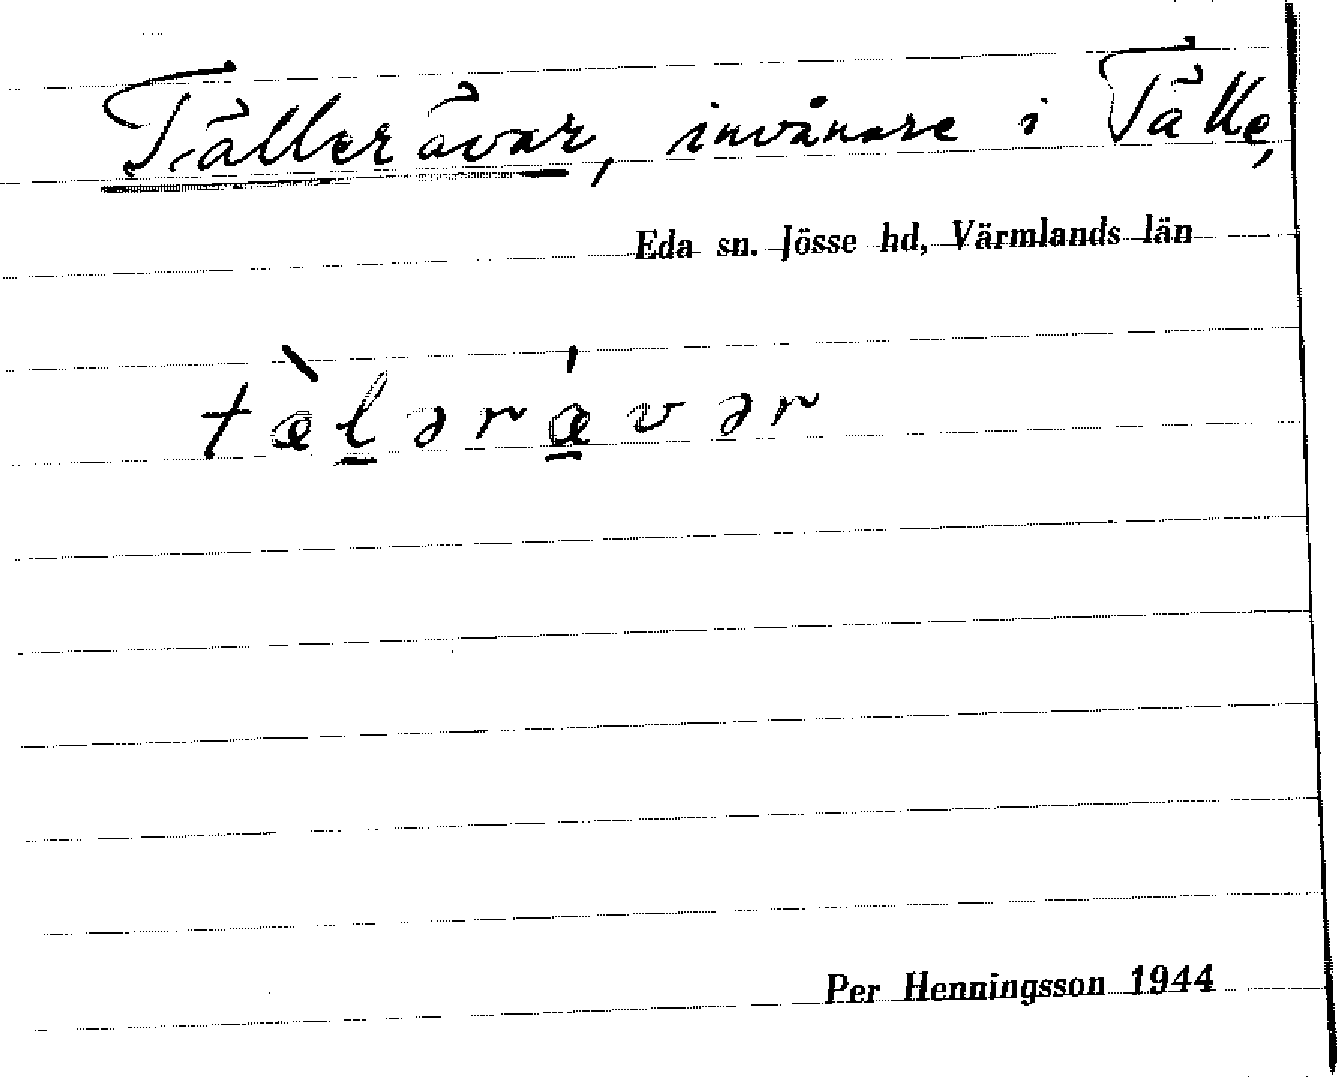 Tällerävar, invånare i Tälle,
Eda sn. Jösse hd, Värmlands län
tæ̀l̠ərǽ̠vər
Per Henningsson 1944